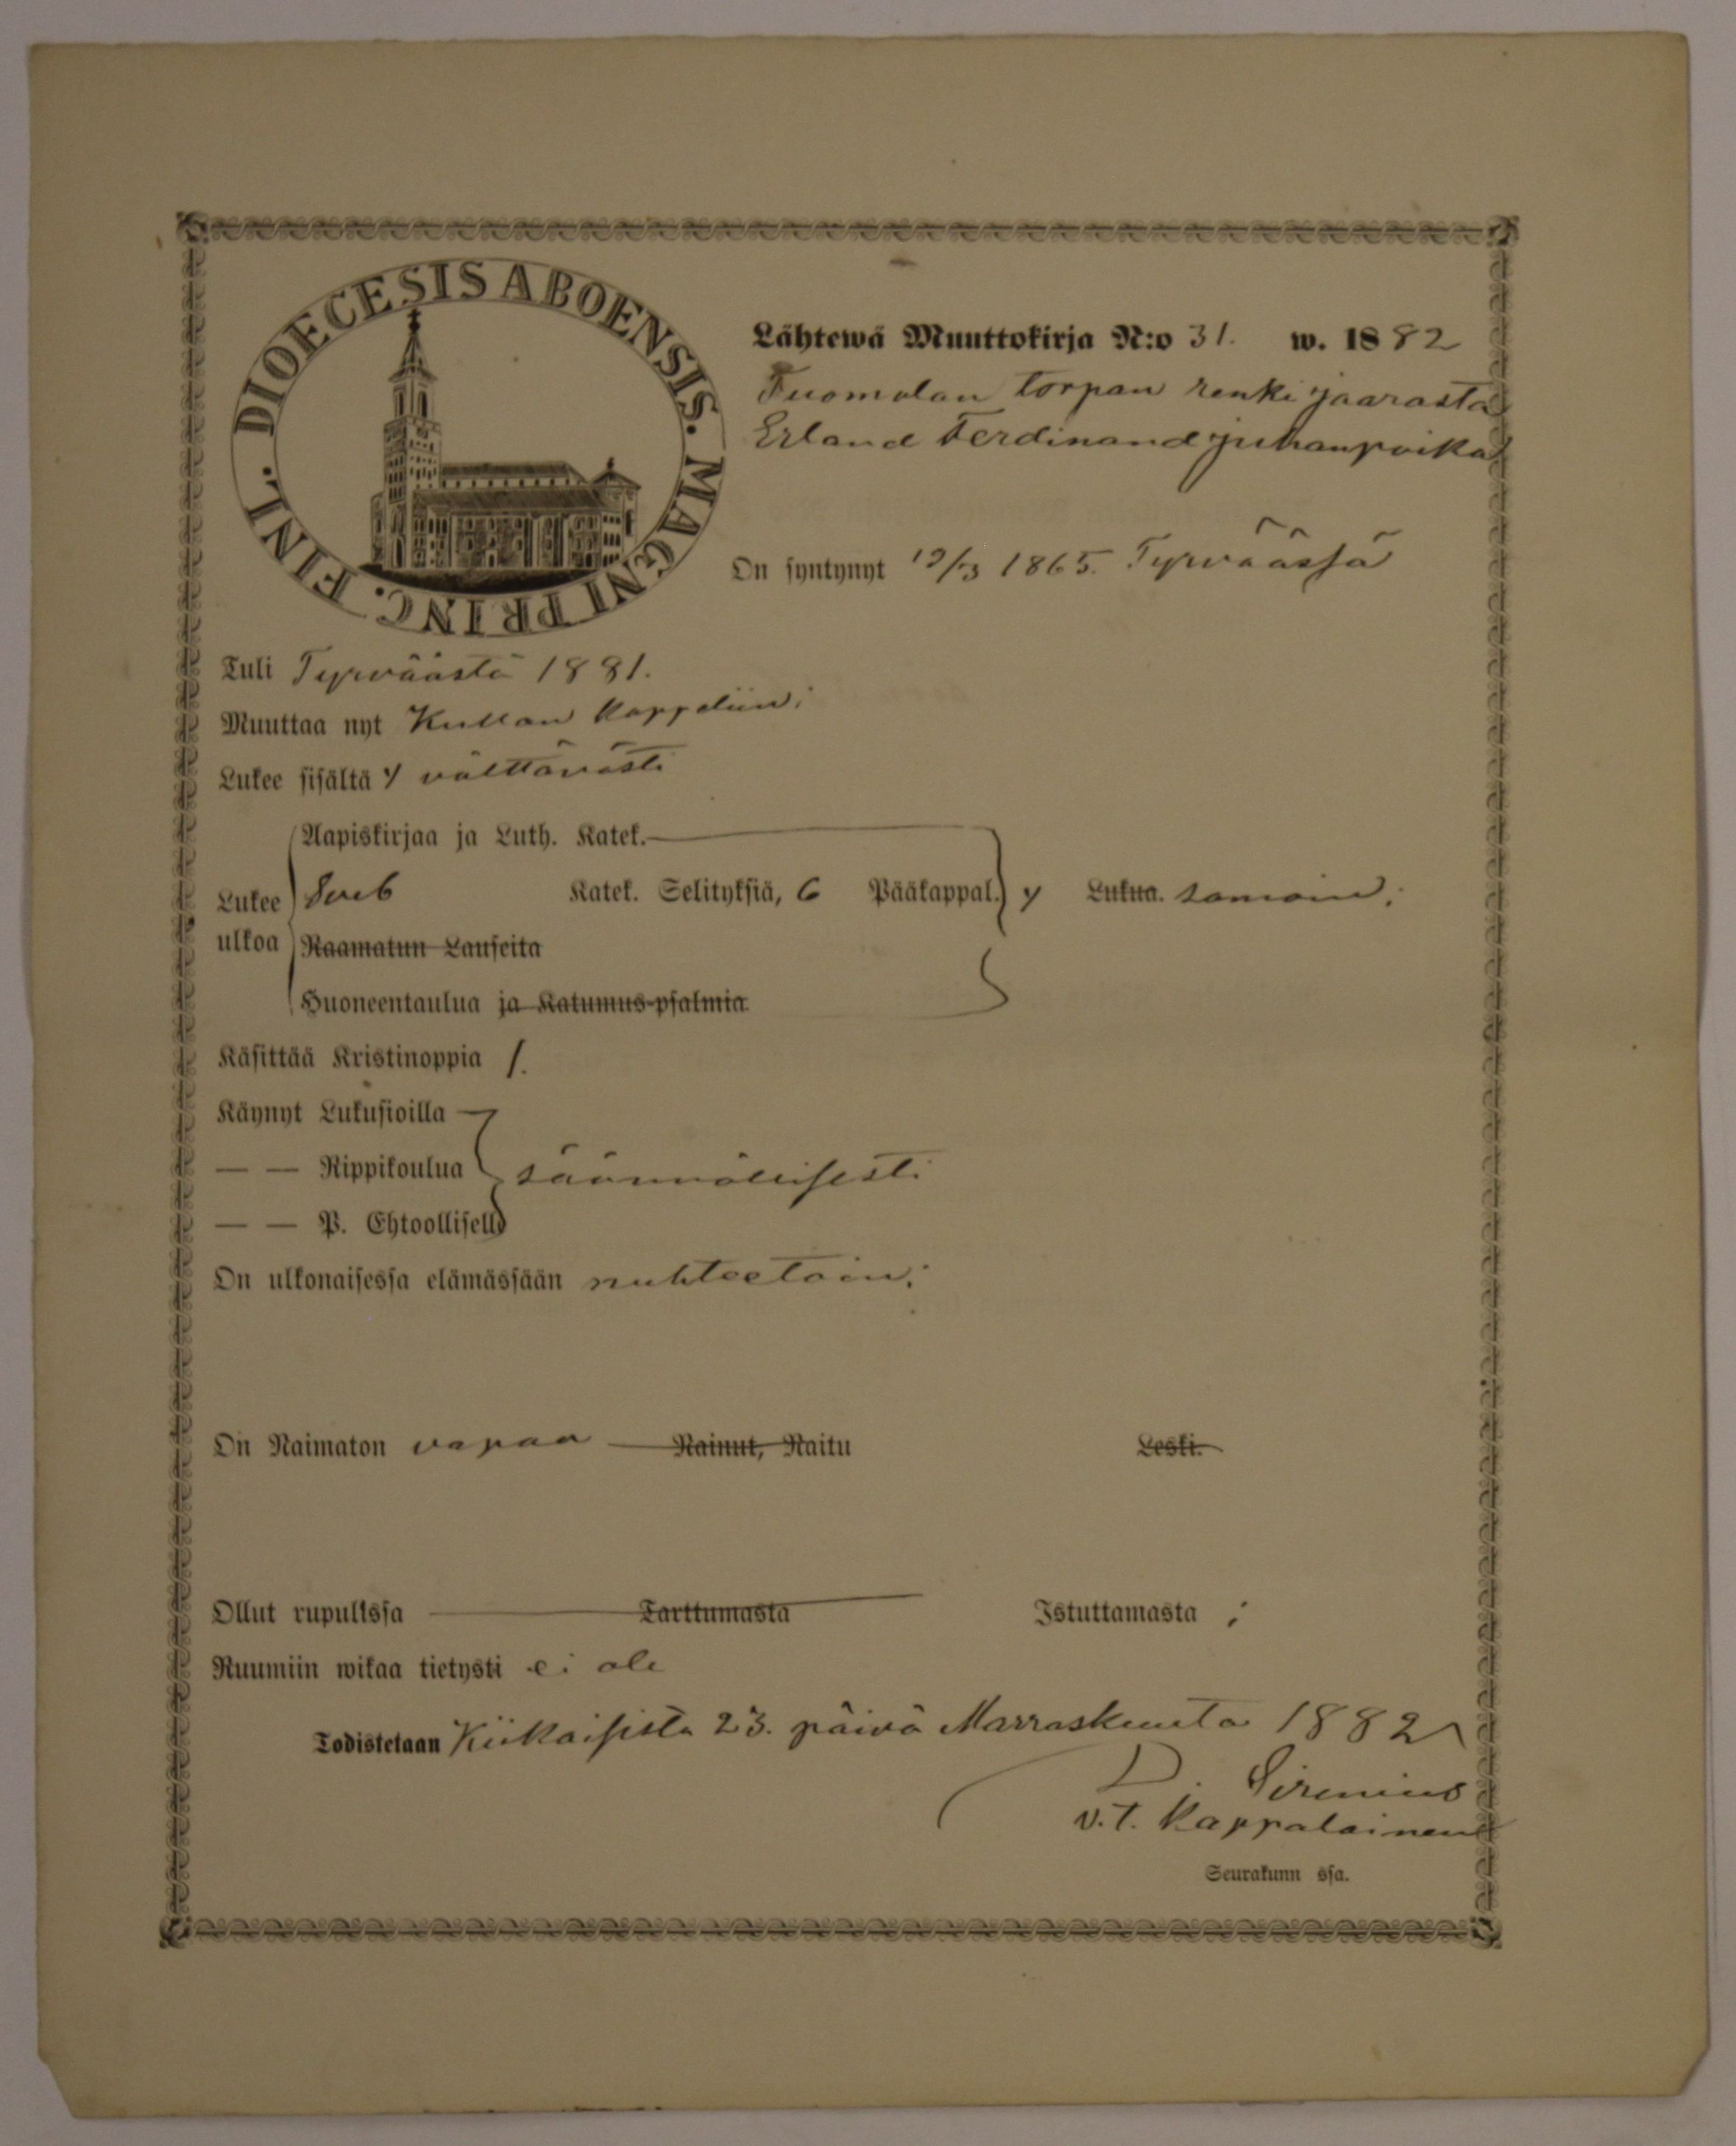 DIOECESIS ABOENSIS. MAGNI PRINC. FINL.
Lähtewä Muuttokirja N:o 31. w. 1882
Tuomolan torpan renki Jaarasta
Erland Ferdinand Juhanpoika
On syntynyt 19/3 1865. Tyrväässä
Tuli Tyrväästä 1881.
Muuttaa nyt Kullan kappeliin;
Lukee sisältä y välttävästi
Aapiskirjaa ja Luth. Katek.
Lukee Sveb Katek. Selityksiä, 6 Pääkappal. y Lukua. samoin;
ulkoa Raamatun Lauseita
Huoneentaulua ja Katumus-psalmia
Käsittää Kristinoppia /.
Käynyt Lukusioilla
— — Rippikoulua säännöllisesti
— — P. Ehtoollisella
On ulkonaisessa elämässään nuhteetoin;
On Naimaton vapaa Nainut, Naitu Leski.
Ollut rupulissa Tarttumasta Istuttamasta ;
Ruumiin wikaa tietysti ei ole
Todistetaan Kiikaisista 23. päivä Marraskuuta 1882
Sirenius
v.t. Kappalainen
Seurakunn ssa.